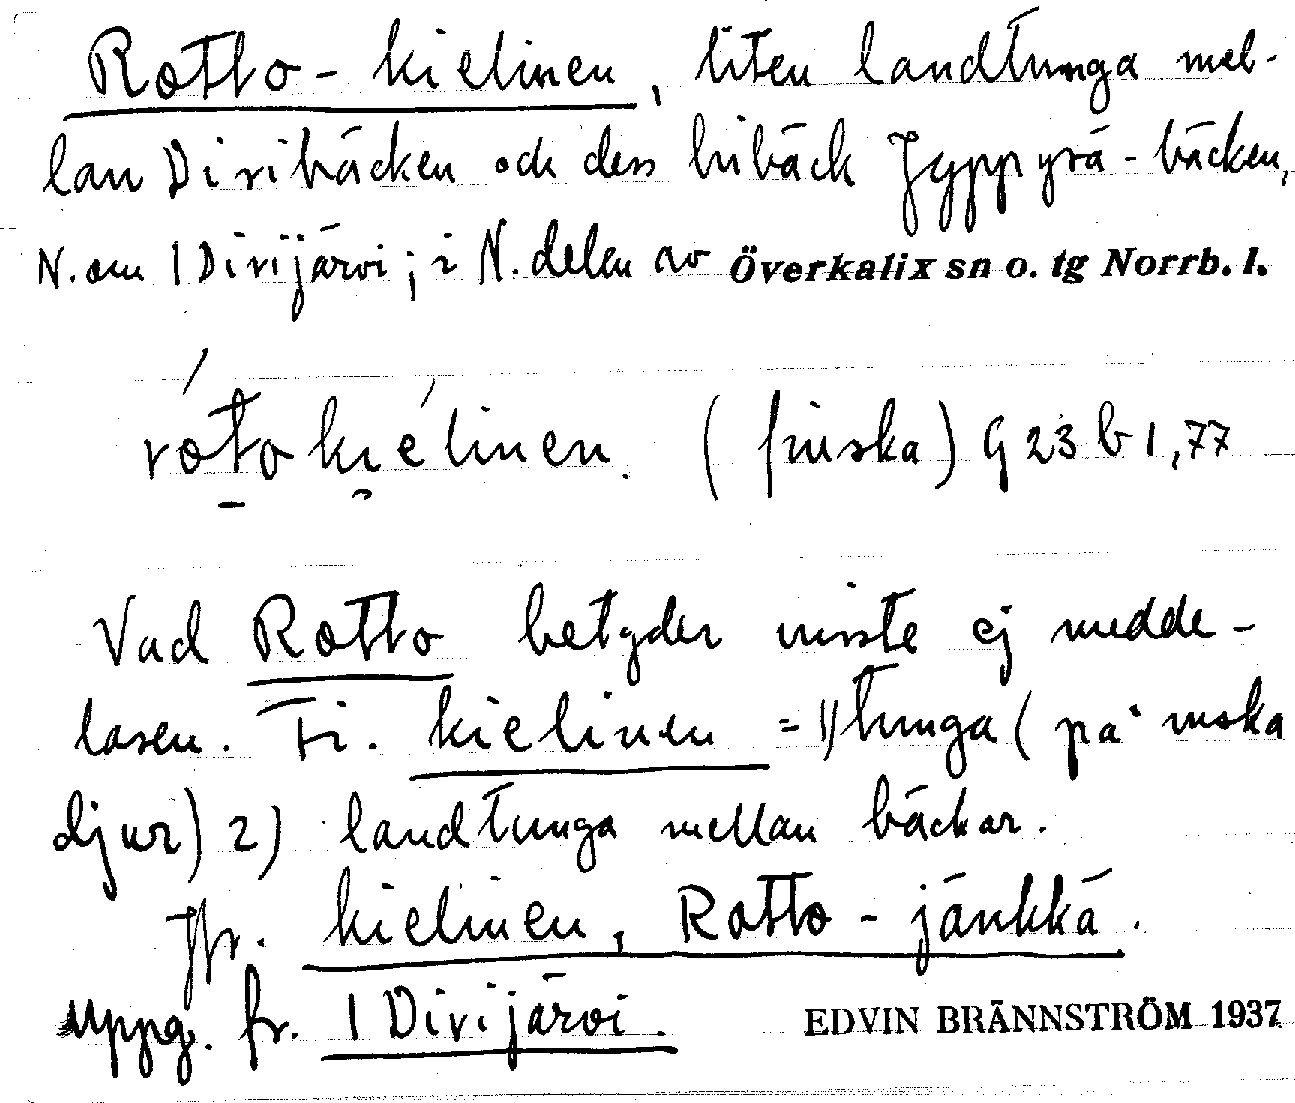 Rotto-kielinen, liten landtunga mel-
lan Divibäcken och dess bibäck Jyppyrä-bäcken,
N. om 1 Divijärvi; i N. delen av Överkalix sn o. tg Norrb. l.
rótokiélinen. (finska) G 23 b 1,77
Vad Rotto betyder visste ej medde-
lasen. Fi. kielinen = 1) tunga (på
djur) 2) landtunga mellan bäckar.
Jfr. kielinen, Rotto-jänkkä.
uppg. fr. 1 Divijärvi. EDVIN BRÄNNSTRÖM 1937